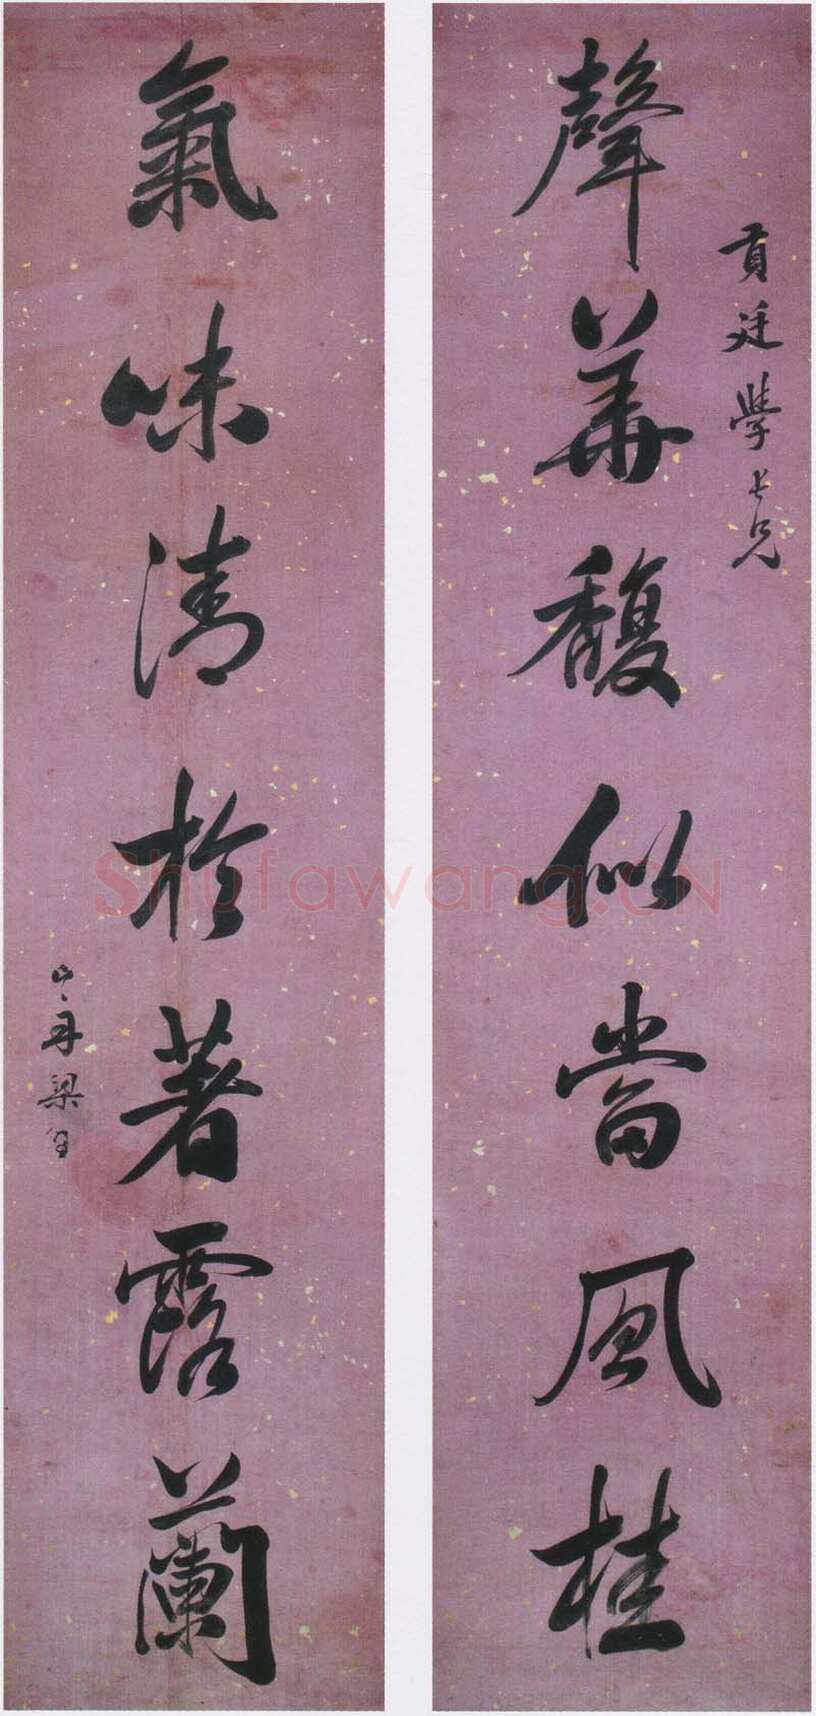 貢廷學長兄
聲華馥似當風桂
氣味清於著露蘭
山舟梁
Shufawang.CN